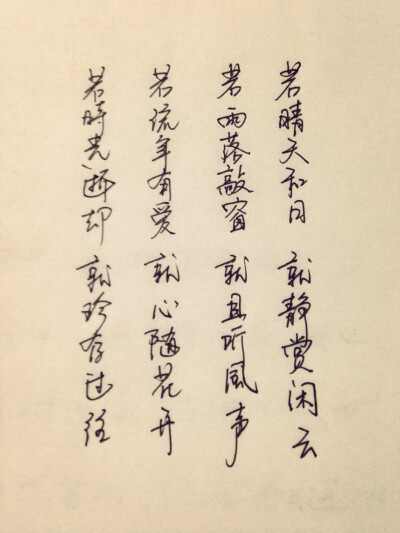 若晴天和日 就静赏闲云
若雨落敲窗 就且听風声
若流年有爱 就心随花开
若時光逝却 就珍存过往